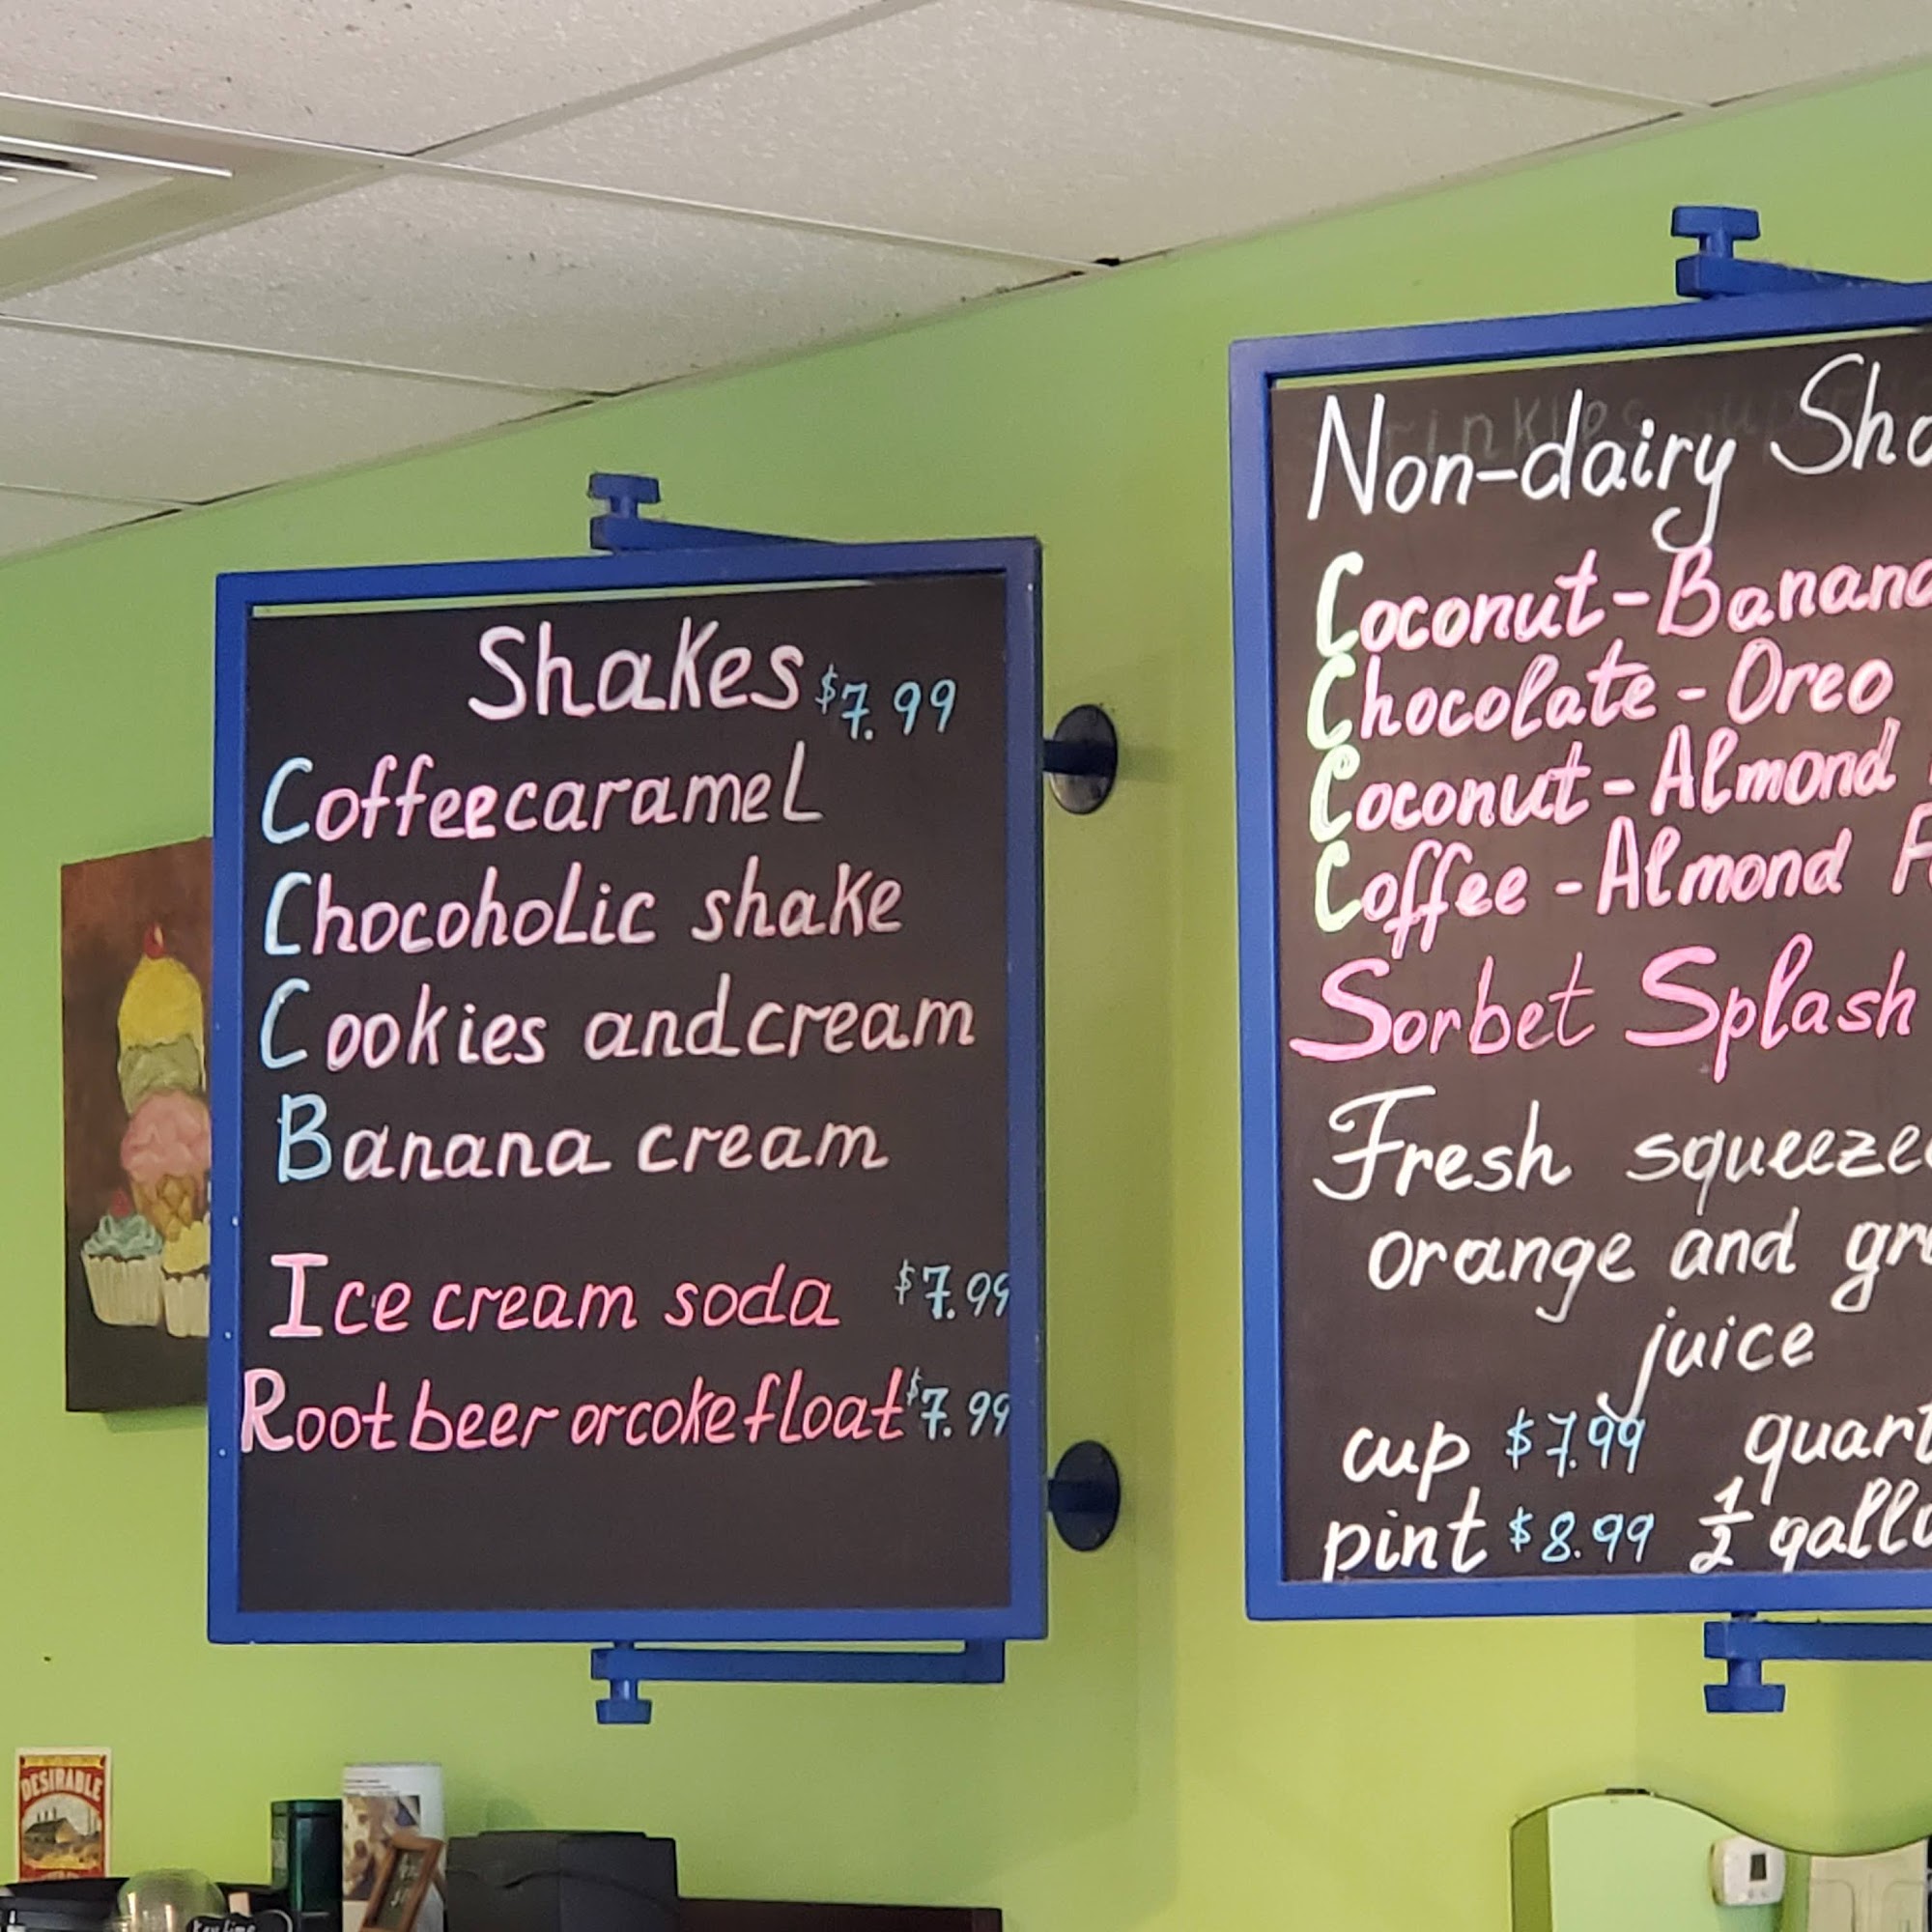 Shakes $7.99
Coffee caramel
Chocoholic shake
Cookies and cream
Banana cream
Ice cream soda $7.99
Root beer or coke float $7.99
Non-dairy
Coconut-Banana
Chocolate-Oreo
Coconut-Almond
Coffee-Almond
Sorbet Splash
Fresh
orange and
juice
cup $7.99 quart
pint $8.99 1/2
DESIRABLE